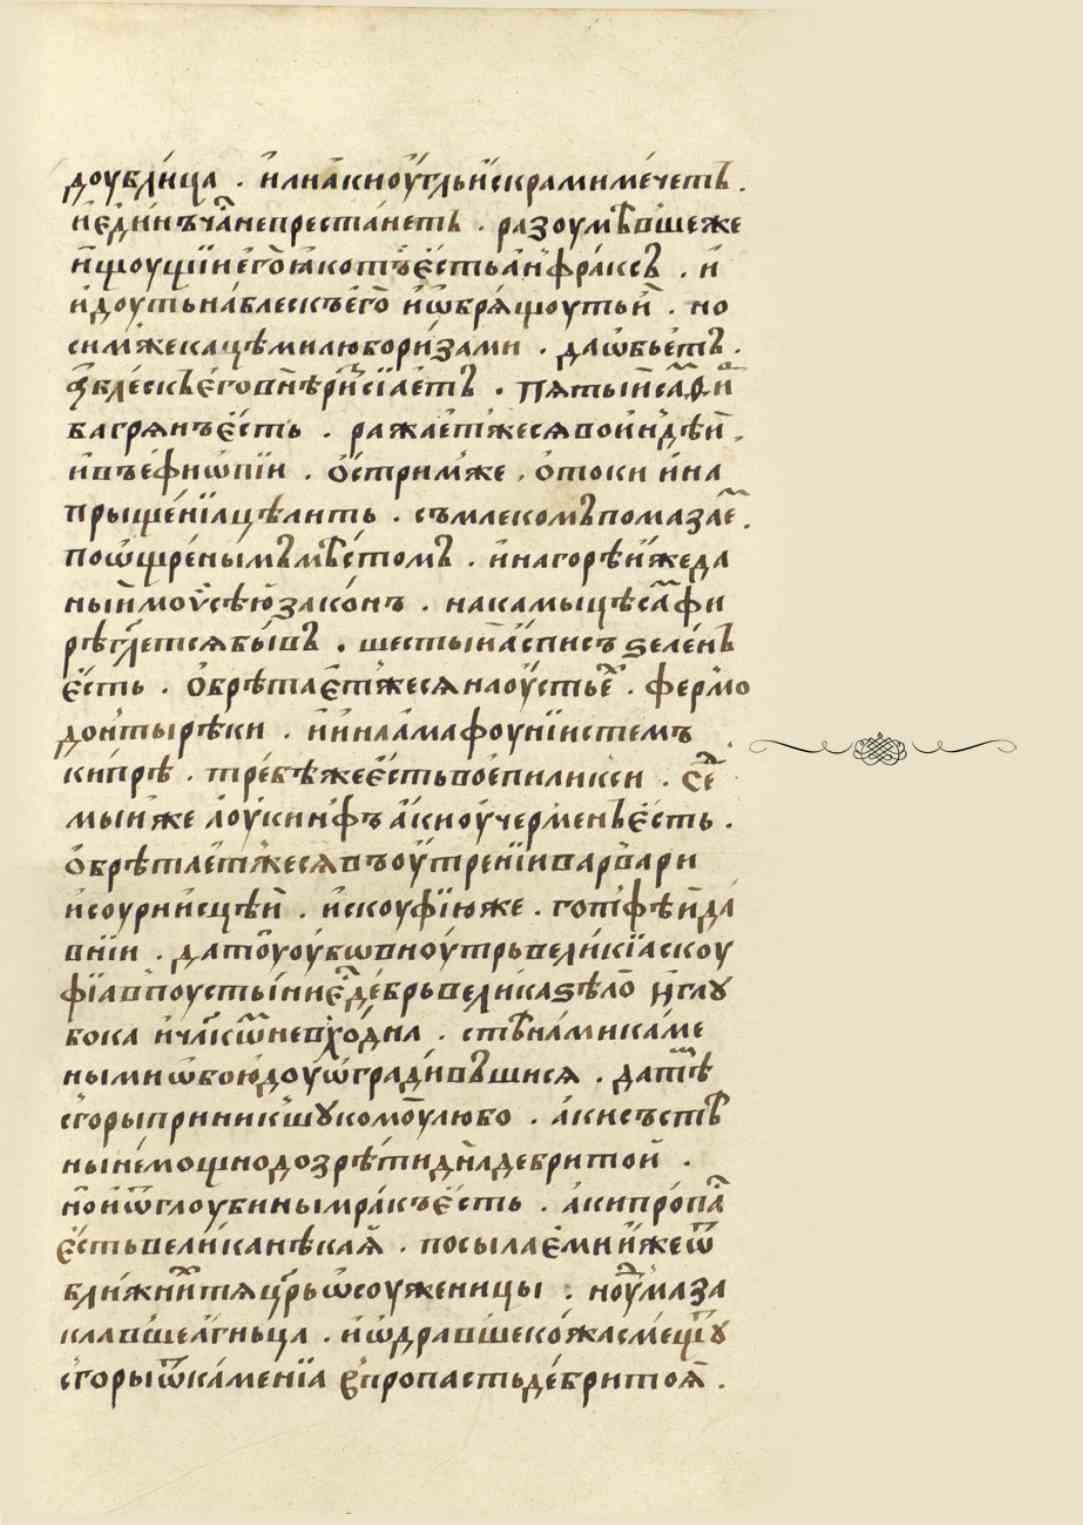 доублица . или ꙗкно ѹгльискрами мечеть .
и единъ чаⷭ непрестанеть . разоумѣвшеже
ищоущїи его ꙗко тъ есть анфраксъ . и
идоуть наблескъ его иѡбрѧщоуть и . но
симже кацѣми любо ризами . да ѡбьетъ .
блескъ его внѣ ризъ сїаетъ . пѧтыи саⷨфи
багрѧнъ есть . ражаетжесѧ во индѣи .
и въ ефиѡпїи . ѻстримже . ѻтоки и на
прыщенїа цѣлить . съмлекомъ помазаеⷨ .
поѡщренымъ мѣстомъ . и на горѣ иже да
ныи моѵсѣю законъ . на камыцѣ саⷨфи
рѣ гл҃етсѧ бывъ . шестыи аспись ѕеленъ
есть . ѻбрѣтаетжесѧ на оустьеⷯ . фермо
донты рѣки . и ина амафоунїистемъ
кипрѣ . требѣже есть во епиликси . сеⷣ
мыиже лоукинфъ акно учерменъ есть .
ѻбрѣтаетжесѧ въ оутренїи варвари
исоурнисцѣи . искоуфїюже . готїфѣи да
внїи . да тоу оубѡ вноутрь великїа скоу
фїа в поустыни еⷭ дебрь велика ѕѣло и глꙋ
бока и чл҃кѡⷨ невходна . стѣнами каме
ными ѡбоюдоу ѡградивъшисѧ . датⷨѣ
сгоры приникшꙋ комоу любо . аки съ стѣ
ны немощно дозрѣти дна дебри тои .
но и ѿ глоубины мракъ есть . аки пропаⷭ
есть велика нѣкаѧ . посылаеми иже ѿ
ближниⷯ тѧ цр҃ь ѡсоуженицы : ноуⷤма за
клавше агньца . и ѡдравше кожа смещꙋ
сгоры ѿ каменїа впропасть дебри тоѧ .